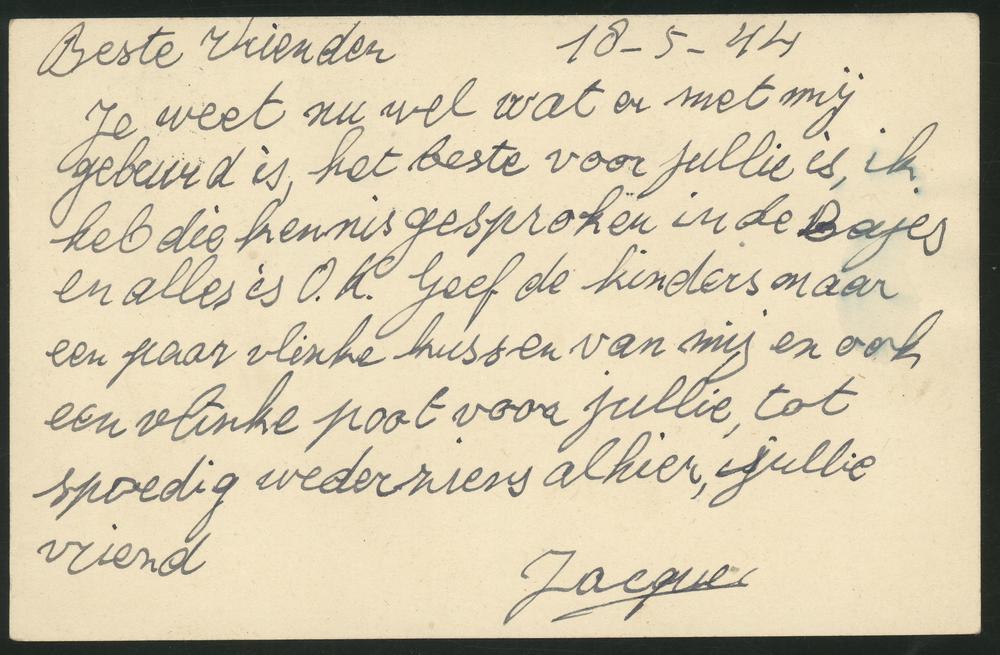 Beste Vrienden 18-5-44
Je weet nu wel wat er met mij
gebeurd is, het beste voor jullie is, ik
heb die kennis gesproken in de Bajes
en alles is O.K. Geef de kinders maar
een paar vlinke kussen van mij en ook
een vlinke poot voor jullie, tot
spoedig wederziens alhier, jullie
vriend
Jacques